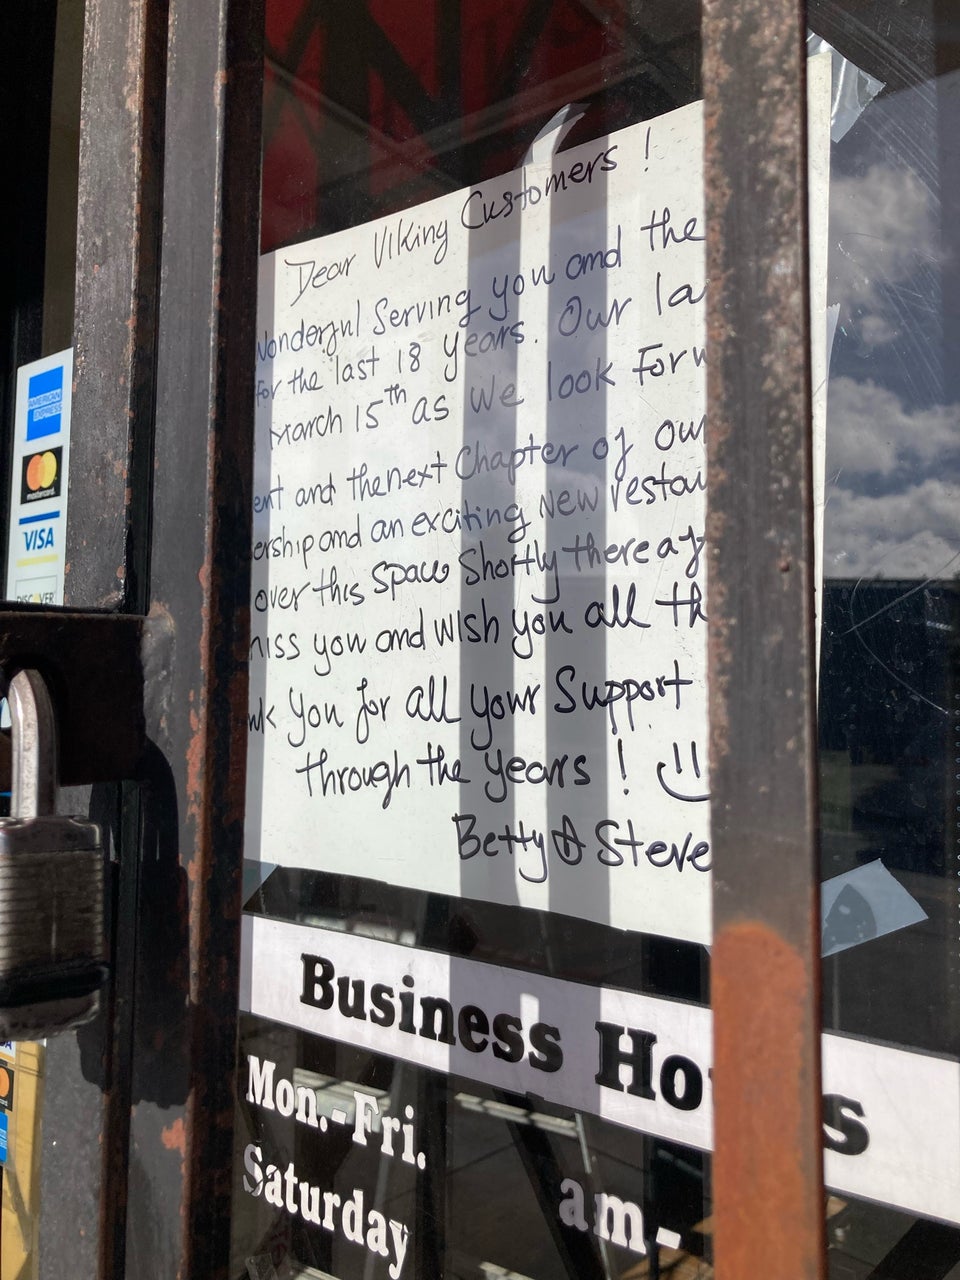 Dear Viking Customers!
Wonderful Serving you and the
for the last 18 years. Our la
March 15th as We look Forw
ent and the next Chapter of our
ership and an exciting New restau
over this space Shortly there af
miss you and wish you all th
nk You for all your Support
through the years! :)
Betty & Steve
AMERICAN EXPRESS
mastercard
VISA
DISCOVER
Business Ho s
Mon.-Fri.
Saturday am-